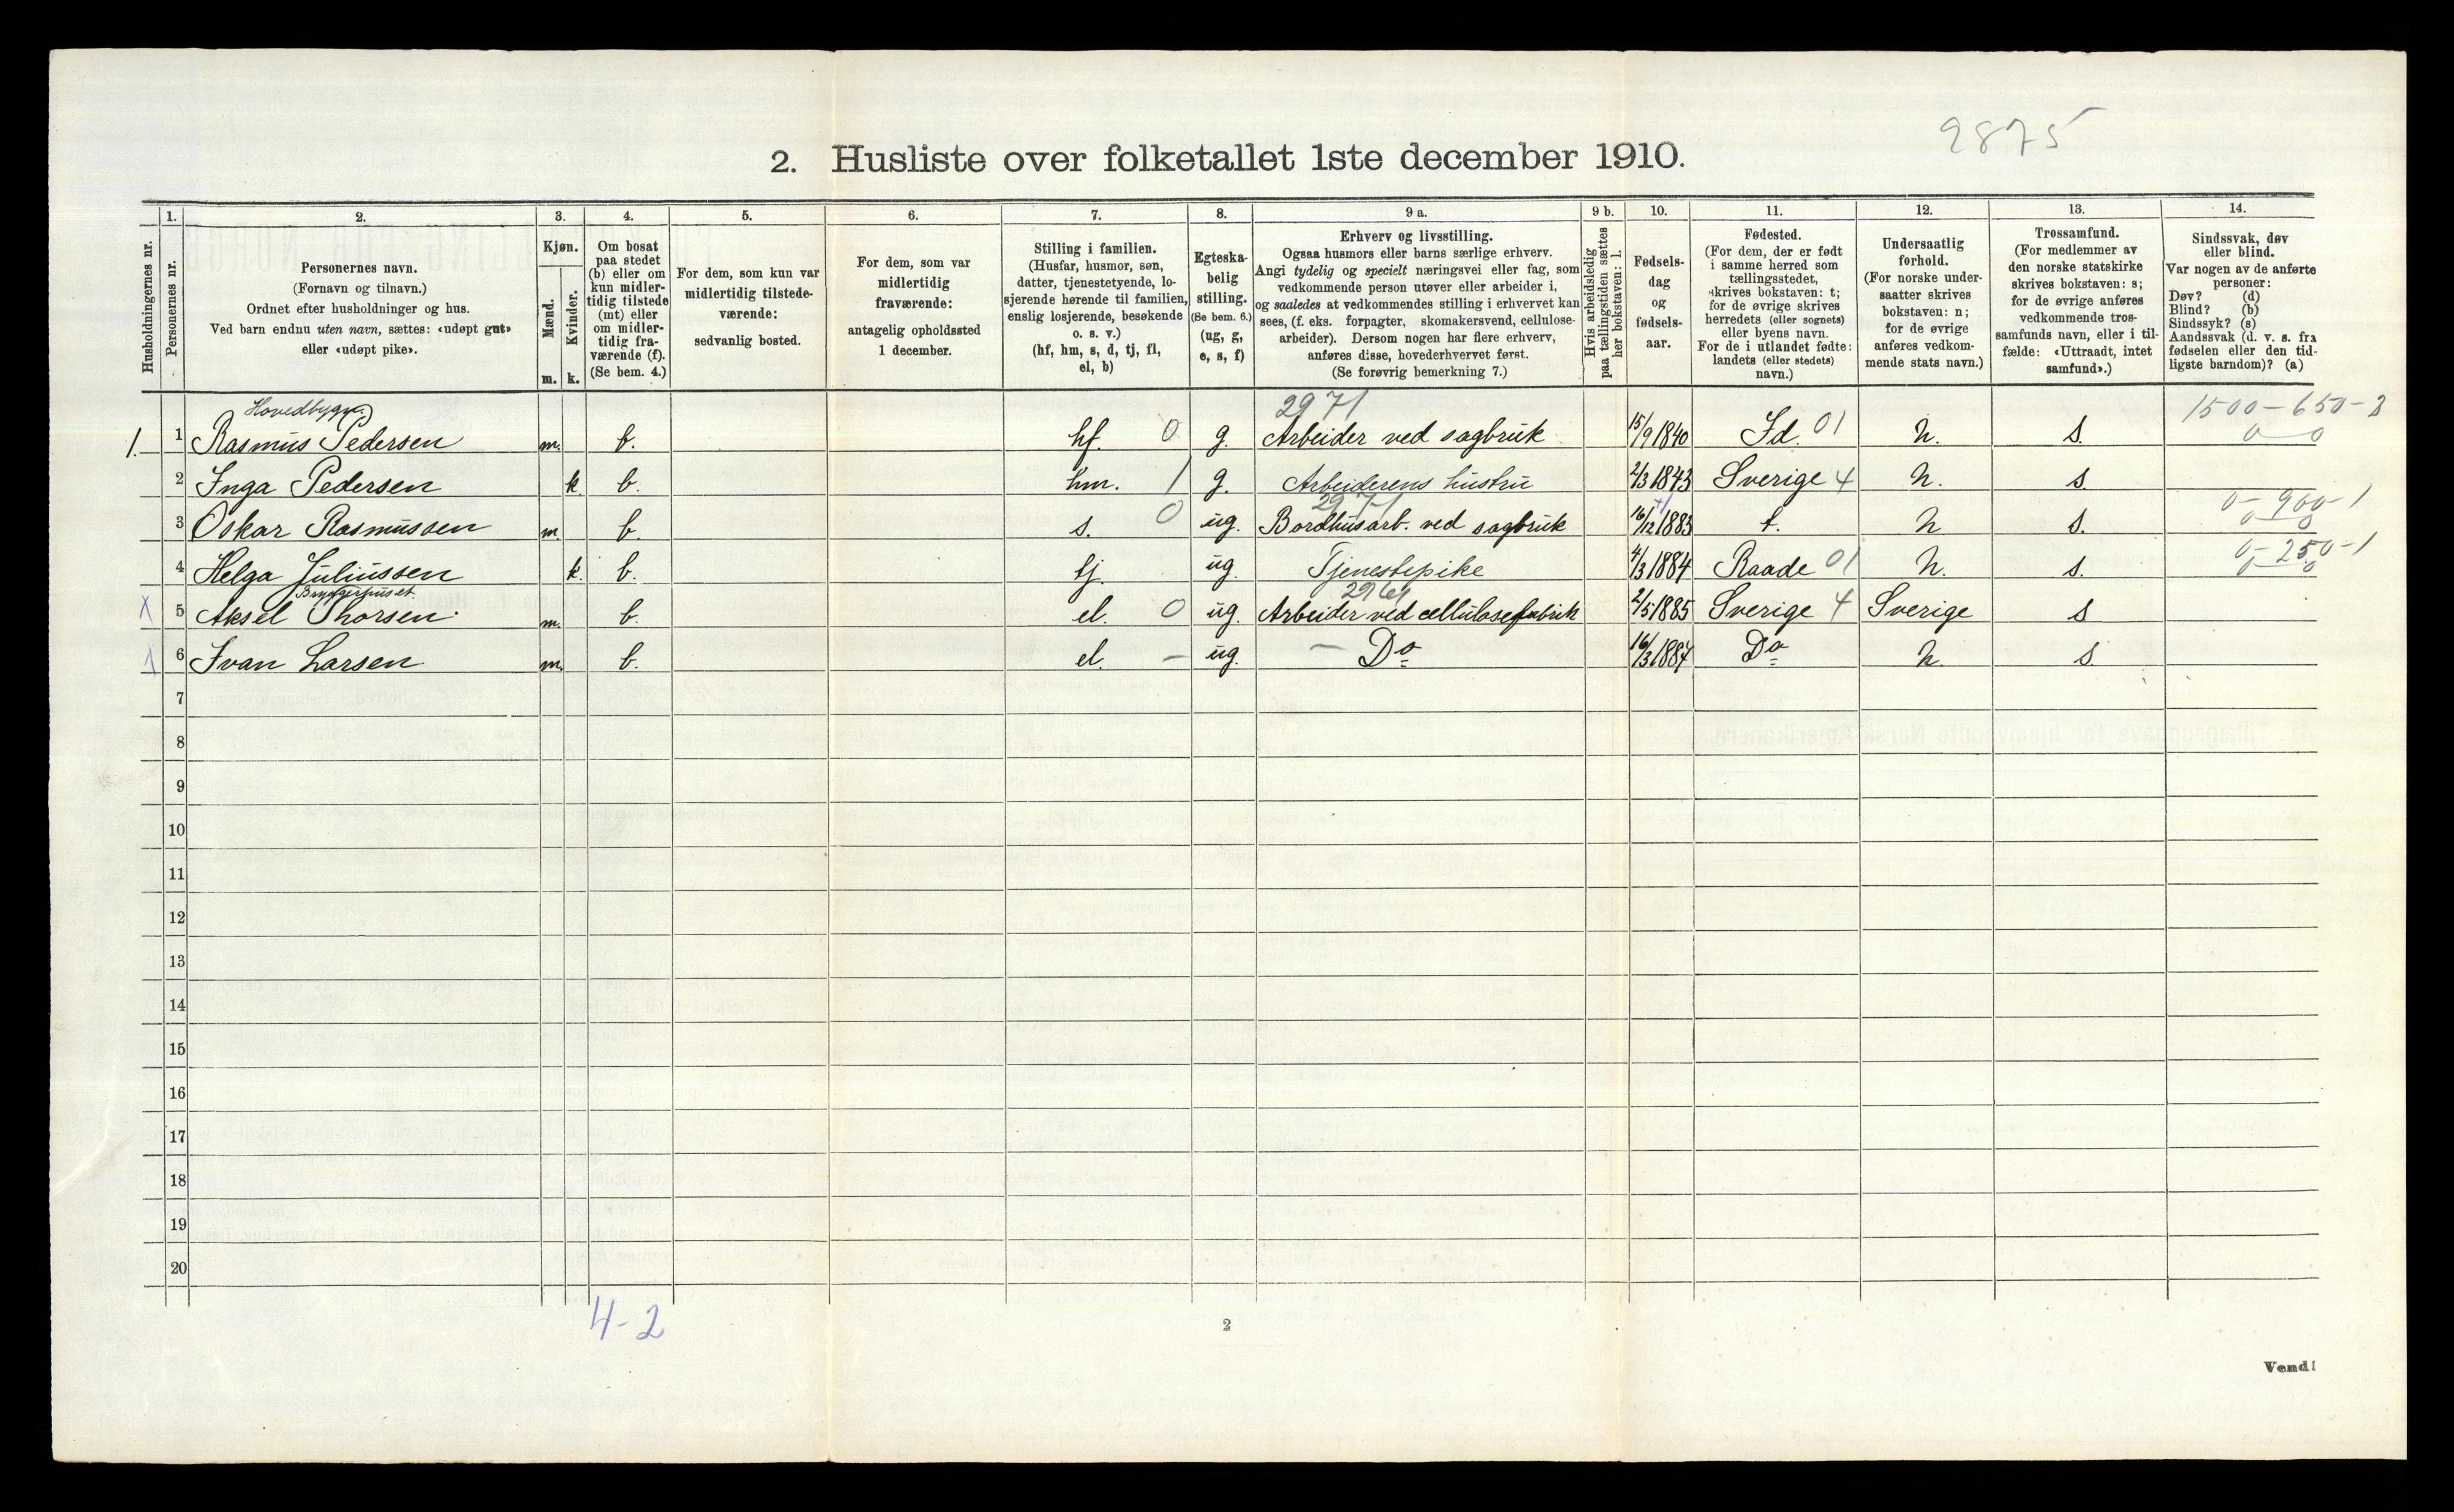 2875
2. Husliste over folketallet 1ste december 1910.
Husholdningernes nr.
1.
Personernes nr.
2.
Personernes navn.
(Fornavn og tilnavn.)
Ordnet efter husholdninger og hus.
Ved barn endnu uten navn, sættes: «udøpt gut»
eller «udøpt pike».
3.
Kjøn.
Mænd.
Kvinder.
m. k.
4.
Om bosat
paa stedet
(b) eller om
kun midler-
tidig tilstede
(mt) eller
om midler-
tidig fra-
værende (f).
(Se bem. 4.)
5.
For dem, som kun var
midlertidig tilstede-
værende:
sedvanlig bosted.
6.
For dem, som var
midlertidig
fraværende:
antagelig opholdssted
1 december.
7.
Stilling i familien.
(Husfar, husmor, søn,
datter, tjenestetyende, lo-
sjerende hørende til familien,
enslig losjerende, besøkende
o. s. v.)
(hf, hm, s, d, tj, fl,
el, b)
8.
Egteska-
belig
stilling.
(Se bem. 6.)
(ug, g,
e, s, f)
9 a.
Erhverv og livsstilling.
Ogsaa husmors eller barns særlige erhverv.
Angi tydelig og specielt næringsvei eller fag, som
vedkommende person utøver eller arbeider i,
og saaledes at vedkommendes stilling i erhvervet kan
sees, (f. eks. forpagter, skomakersvend, cellulose-
arbeider). Dersom nogen har flere erhverv,
anføres disse, hovederhvervet først.
(Se forøvrig bemerkning 7.)
9 b.
Hvis arbeidsledig
paa tællingstiden sættes
her bokstaven: l.
10.
Fødsels-
dag
og
fødsels-
aar.
11.
Fødested.
(For dem, der er født
i samme herred som
tællingsstedet,
skrives bokstaven: t;
for de øvrige skrives
herredets (eller sognets)
eller byens navn.
For de i utlandet fødte:
landets (eller stedets)
navn.)
12.
Undersaatlig
forhold.
(For norske under-
saatter skrives
bokstaven: n;
for de øvrige
anføres vedkom-
mende stats navn.)
13.
Trossamfund.
(For medlemmer av
den norske statskirke
skrives bokstaven: s;
for de øvrige anføres
vedkommende tros-
samfunds navn, eller i til-
fælde: «Uttraadt, intet
samfund».)
14.
Sindssvak, døv
eller blind.
Var nogen av de anførte
personer:
Døv? (d)
Blind? (b)
Sindssyk? (s)
Aandssvak (d. v. s. fra
fødselen eller den tid-
ligste barndom)? (a)
Hovedbygn. 2971 1500-650-2
1. 1 Rasmus Pedersen m. b. hf. 0 g. Arbeider ved sagbruk 15/9 1840 Id. 01 n. s. 0 0
2 Inga Pedersen k b. hm. 1 g. Arbeiderens hustru 2/3 1843 Sverige 4 n. s.
2971 0-900-1
3 Oskar Rasmussen m. b. s. 0 ug. Bordhusarb. ved sagbruk 16/12 1883 t. n s. 0 0
0-250-1
4 Helga Juliussen k. b. tj. ug. Tjenestepike 4/3 1884 Raade 01 n. s. 0 0
Bryggerhuset 2961
X 5 Aksel Thorsen m. b. el. 0 ug. Arbeider ved cellulosefabrik 2/5 1885 Sverige 4 Sverige s
6 Ivan Larsen m. b. el. - ug. - Do 16/3 1887 Do n. s.
7
8
9
10
11
12
13
14
15
16
17
18
19
20
4-2
2
Vend!